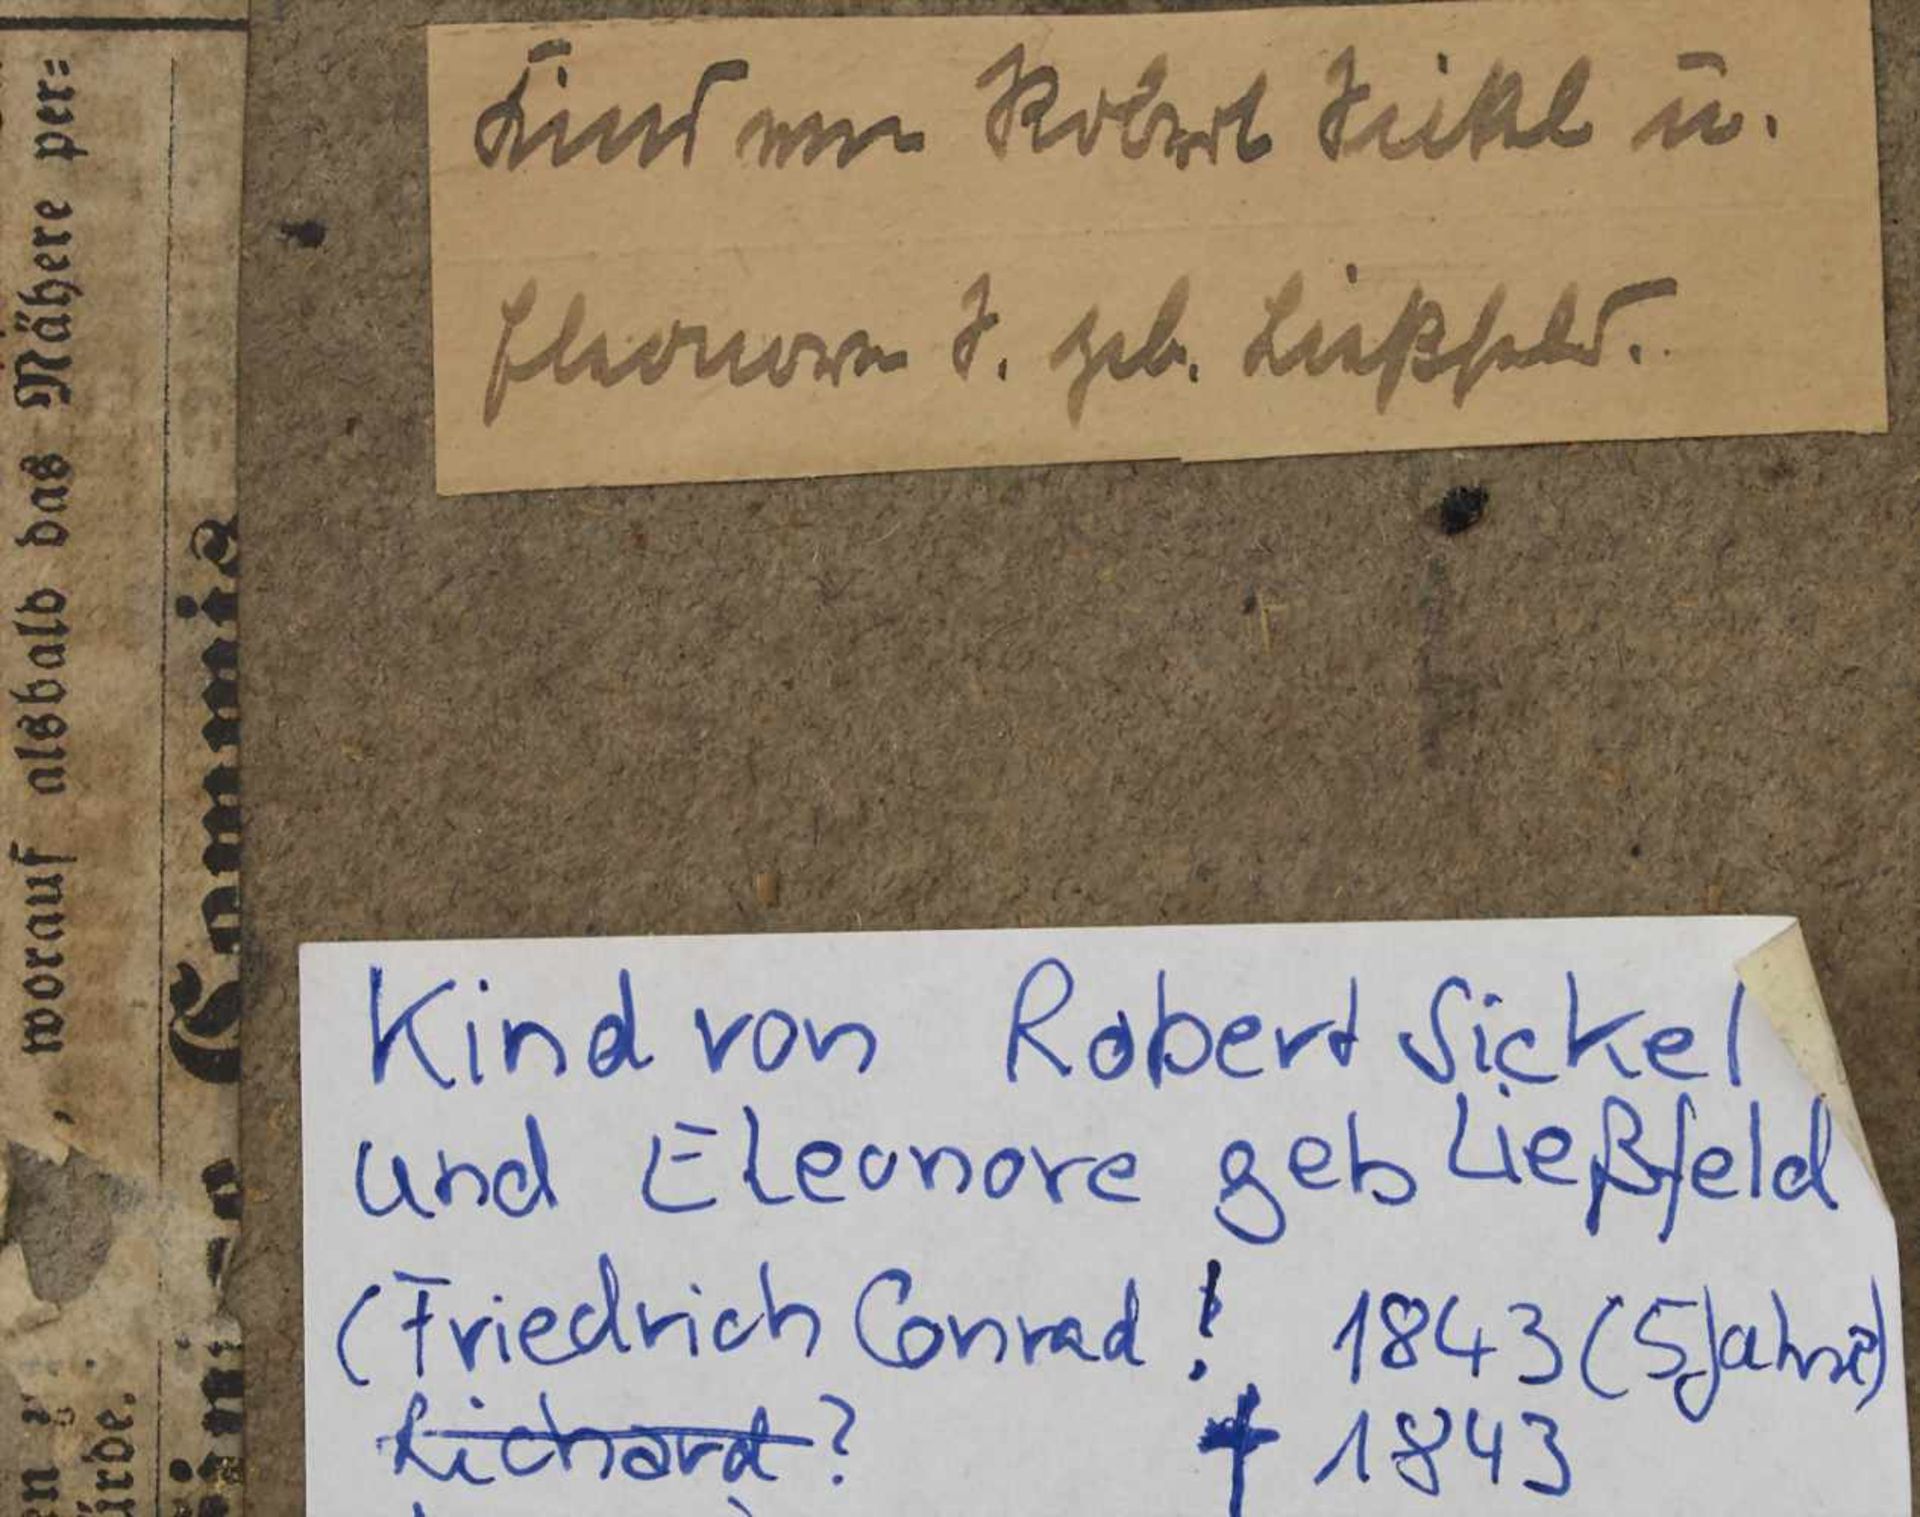 Kind von Robert Sickel u.
Eleonore S. geb. Ließfeld.
Kind von Robert Sickel
und Eleonore geb Ließfeld
(Friedrich Conrad ! 1843 (5 Jahre)
Richard ? † 1843
, worauf alsbald das Nähere per=
Commis
ürde.